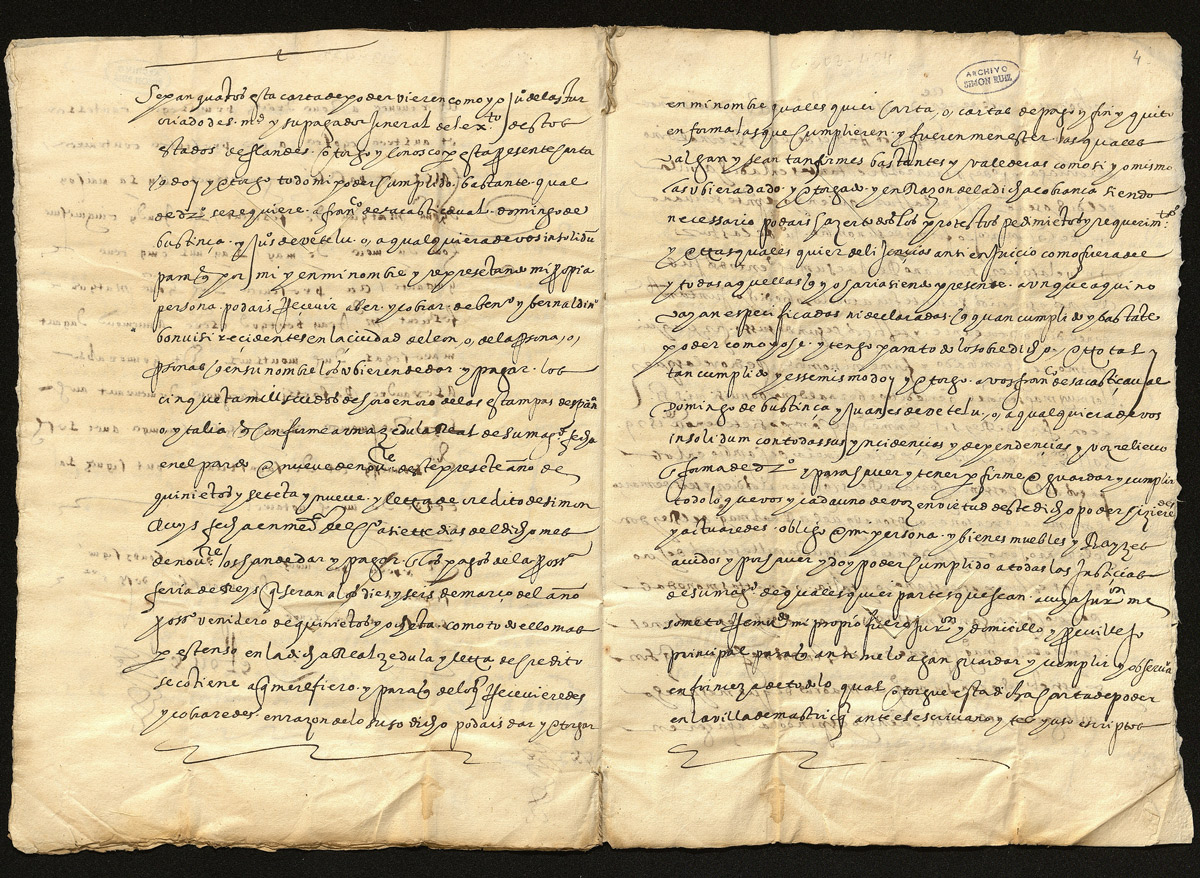 Sepan quātos esta carta de poder vieren como yo juº de lastur
criado de s. mᵈ y su pagador jeneral del exᵗᵒ destos
estados de flandes. otorgo y conosco por esta presente carta
q̄ doy y otorgo todo mi poder cumplido, bastante qual
de drº se requiere. a franᶜᵒ de sacasticaual. domingo de
bustinça. y juºs de vetelu. o, a qualquiera de vos insolidū
para q̄ por mi y en mi nombre y represētando mi propia
persona podais Reçeuir aber. y cobrar. de benᵗᵒ y bernaldinº
bonuisi recidentes en la ciudad de leon, o, de la persona, o,
personas q̄ en su nombre los vbieren de dar y pagar. los
cinquēta mill escudos de horo en oro de las estampas de españ
o, ytalia q̄ conforme a una zedula Real de su magᵈ fecha
en el pardo a nueue de nouᵇʳᵉ deste presēte año de
quinietos y setēta y nueue. y letra de credito de simon
Ruys fecha en madᵈ a siete dias del dicho mes
de nouᵇʳᵉ los han de dar y pagar. en los pagos de la prosª
ferra de Reys q̄ seran a los dies y seis de março del año
prosº venidero de quinietos y ochēta. como todo ello mas
por estenso en la dicha Real zedula y letra de credito
se cōtiene a q̄ me refiero. y para q̄ de lo q̄ Reçeuieredes
y cobraredes. en razon de lo suso dicho podais dar y otorgar
ARCHIVO
SIMON RUIZ
4
en mi nombre quales quier carta, o, cartas de pago y fin y quito
en forma las que cumplieren. y fueren menester. las quales
valgan y sean tan firmes bastantes y valederas como si yo mismo
las vbiera dado. y otorgado. y en Razon de la dicha cobrança siendo
necessario podais hazer todos los protestos pedimiētos y requerimᵗᵒˢ
y otras quales quier delijençias ansi en juiçio como fuera del
y todas aquellas q̄ yo haria siendo presente. aunque aqui no
vayan especificados ni declarados. q̄ quan cumplido y bastāte
poder como yo se. y tengo para todo lo sobredicho, otro tal y
tan cumplido y esse mismo doy y otorgo. a vos franᶜᵒ de sacasticaual
Domingo de bustinca y juanes de vetelu, o, a qualquiera de vos
insolidum con todas sus ynçidençias y dependençias y vos relieuo
en forma de drº y para hauer y tener por firme guardar y cumplir
todo lo que vos y cada uno de vos en virtud deste dicho poder hizieredes
y actuaredes. obligo mi persona. y bienes muebles y Rayzes
auidos y por hauer y doy poder cumplido a todas las Justicias
de su magᵈ de quales quier partes que sean. a cuya jurᵒⁿ me
someto Renūciādo mi propio fuero jurᵒⁿ y domicilio y preuilejo
principal para q̄ ansi me lo agan guardar y cumplir y observar
en firmeza de todo lo qual otorgue esta dicha carta de poder
en la villa de mastricq̄ ante el escriuano y tesᵒˢ yuso escriptos